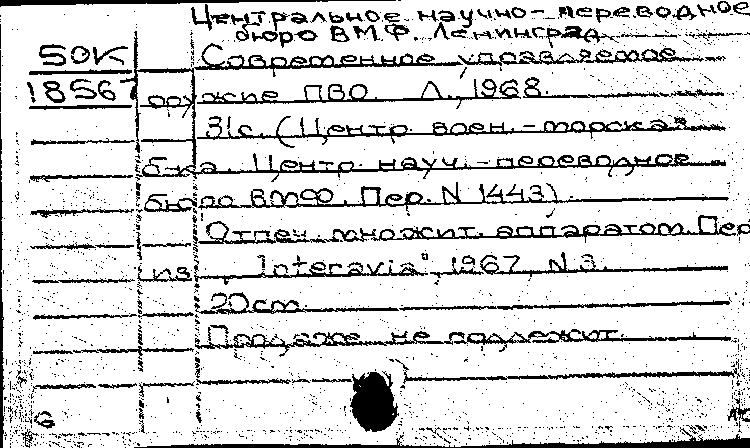 Центральное научно-переводное
бюро ВМФ. Ленинград
50К Современное управляемое
18567 оружие ПВО. Л., 1968.
31с. (Центр. воен.-морская
б-ка. Центр. науч.-переводное
бюро ВМФ. Пер. N 1443).
Отпеч. множит. аппаратом. Пер
из „Interavia", 1967, N 3.
20cm.
Продаже не подлежит.